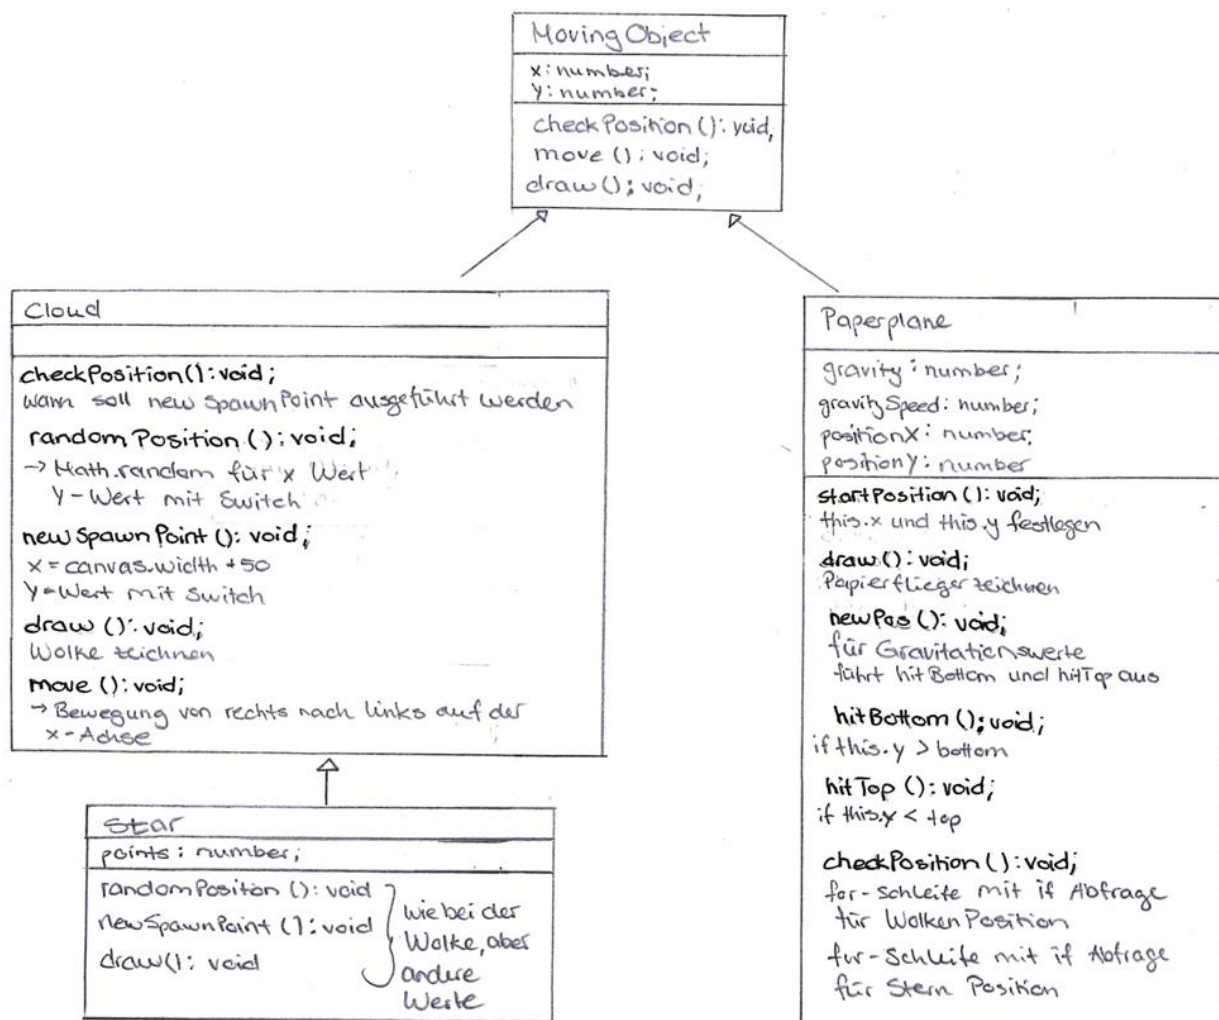 MovingObject
x: number;
y: number;
checkPosition (): void;
move (): void;
draw(): void;
Cloud
checkPosition(): void;
wann soll new SpawnPoint ausgeführt werden
randomPosition (): void;
→ Math.random für x Wert
Y-Wert mit Switch
newSpawnPoint (): void;
x = canvas.width +50
Y=Wert mit Switch
draw (): void;
Wolke zeichnen
move (): void;
→ Bewegung von rechts nach links auf der
x-Achse
Star
points: number;
randomPositon (): void
newSpawnPoint (): void
draw(): void
wie bei der
Wolke, aber
andere
Werte
Paperplane
gravity: number;
gravitySpeed: number;
positionX: number;
positionY: number
startPosition (): void;
this.x und this.y festlegen
draw(): void;
Papierflieger zeichnen
newPos (): void;
für Gravitationswerte
führt hitBottom und hitTop aus
hitBottom (): void;
if this.y > bottom
hitTop (): void;
if this.y < top
checkPosition (): void;
for-schleife mit if Abfrage
für Wolken Position
for-Schleife mit if Abfrage
für Stern Position